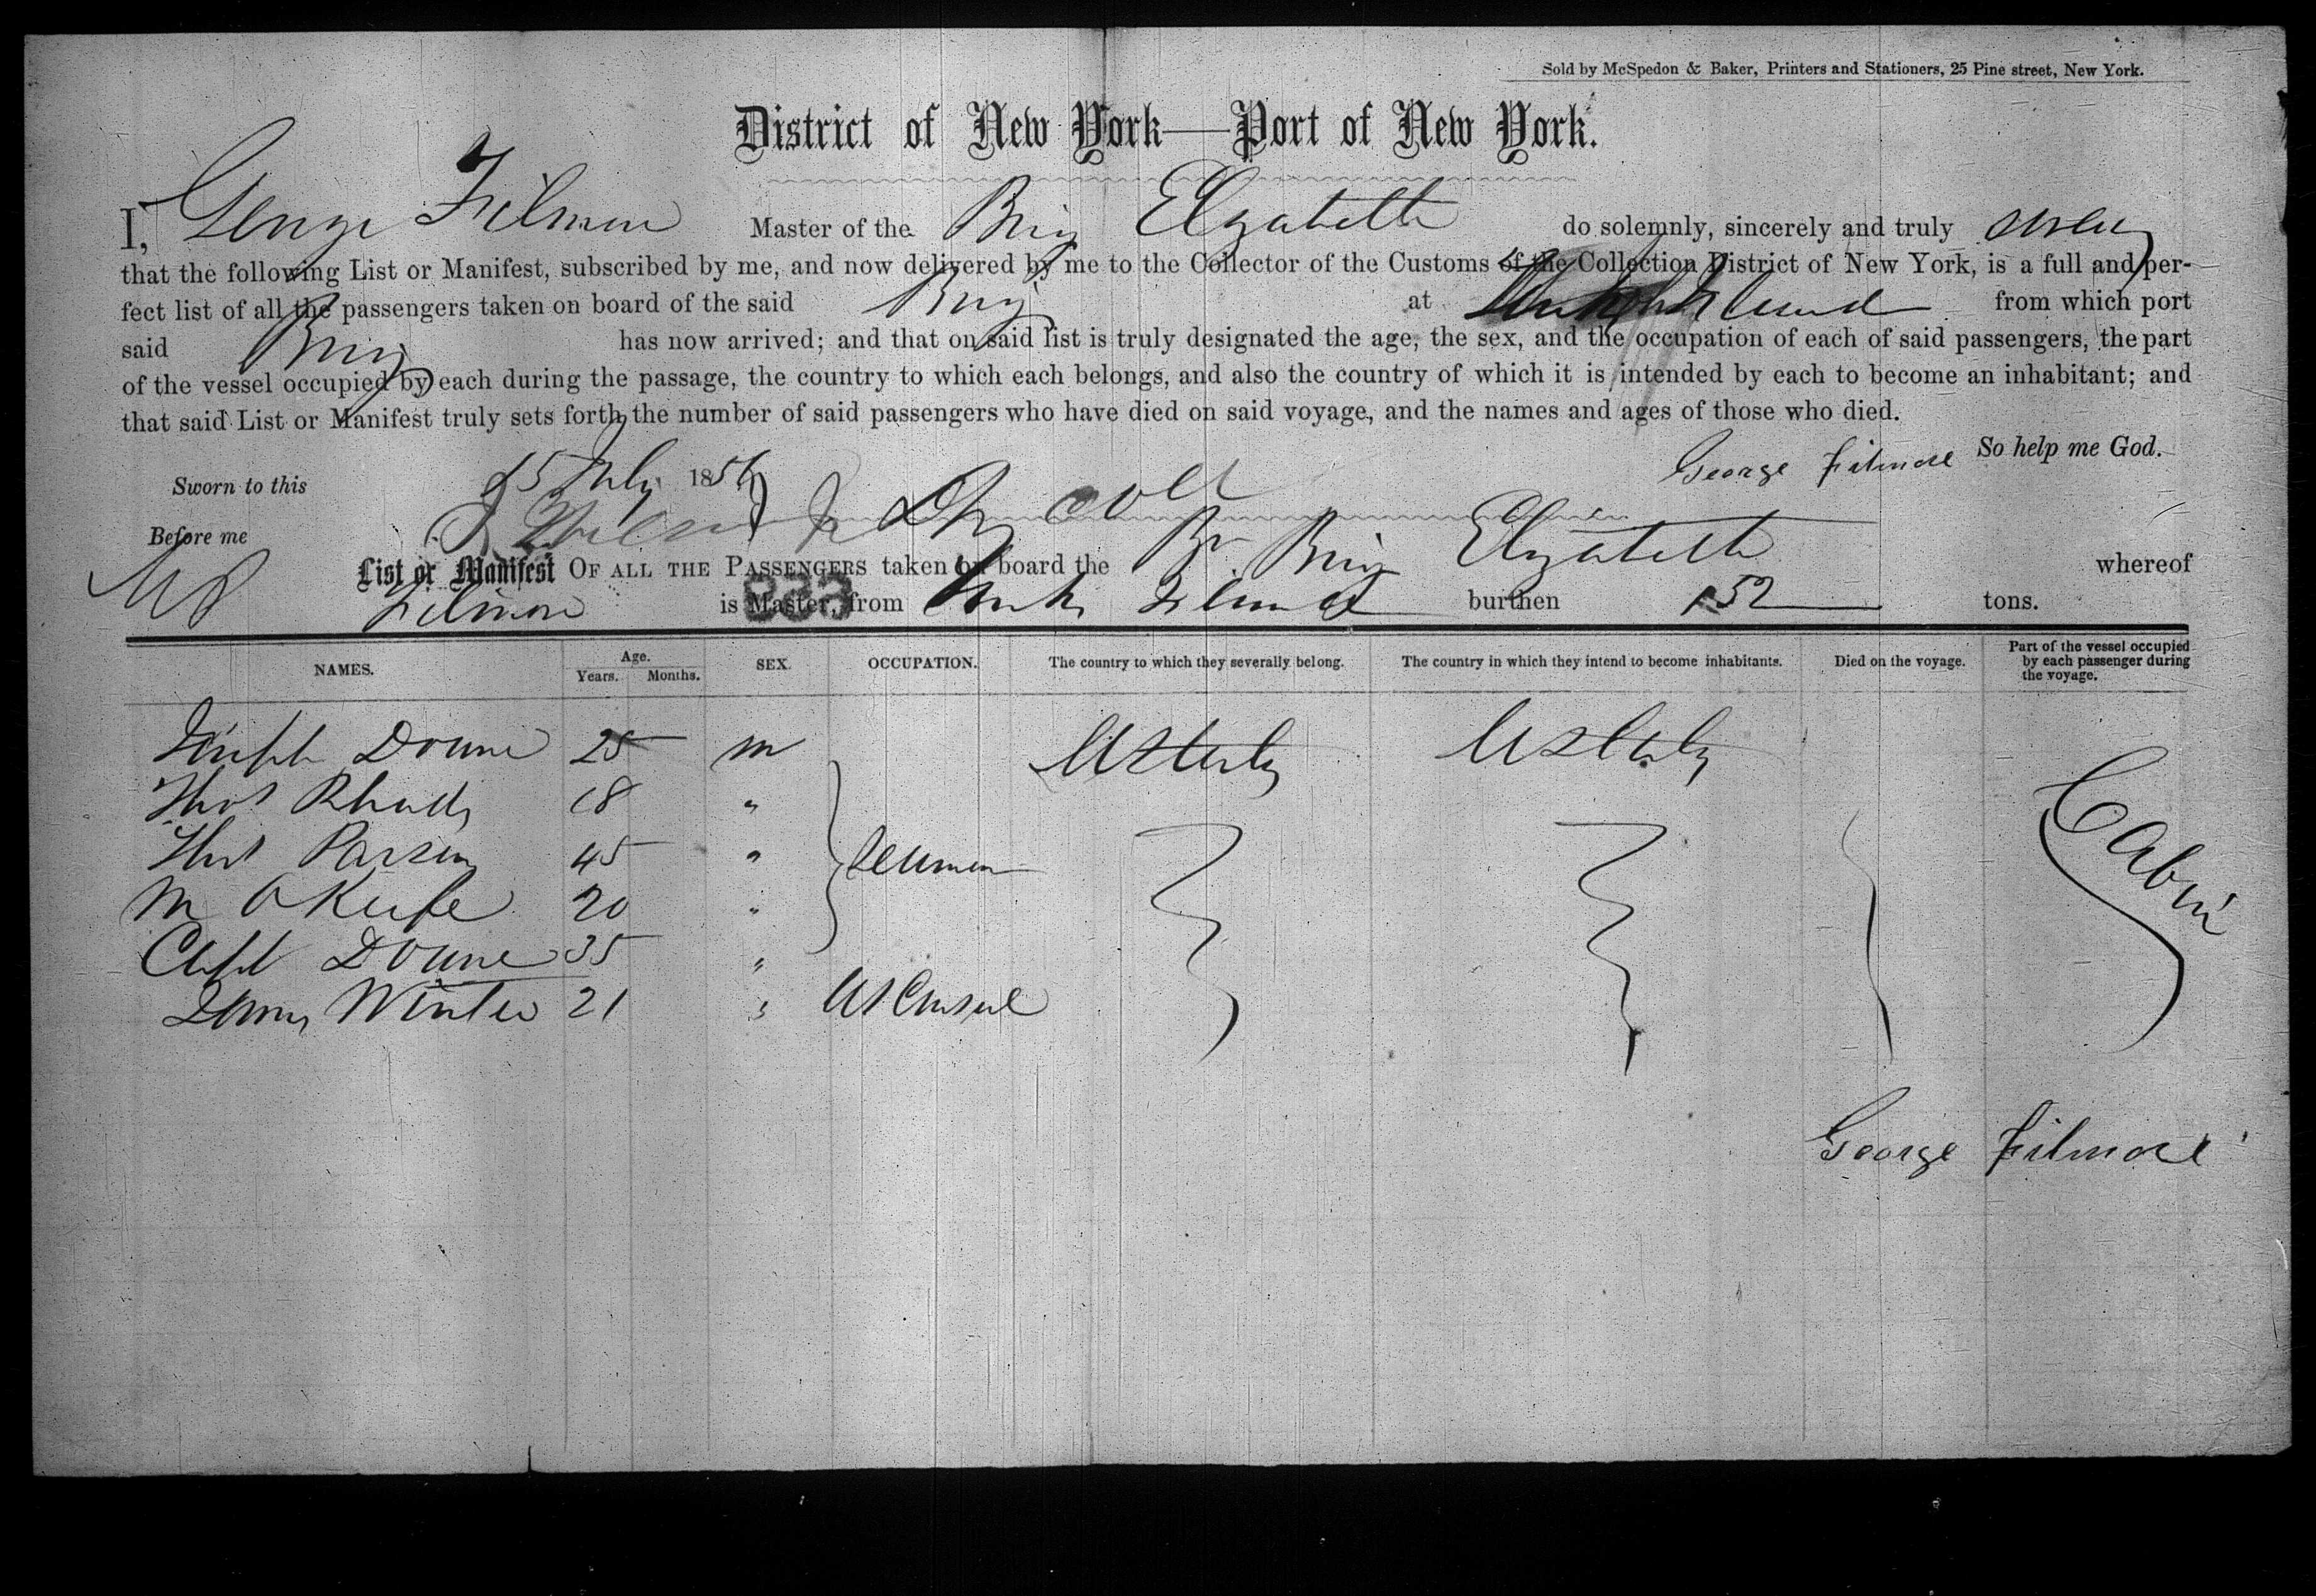 Sold by McSpedon & Baker, Printers and Stationers, 25 Pine street, New York.
District of New York—Port of New York.
I, George Filmore Master of the Brig Elizabeth do solemnly, sincerely and truly swear
that the following List or Manifest, subscribed by me, and now delivered by me to the Collector of the Customs of the Collection District of New York, is a full and per-
fect list of all the passengers taken on board of the said Brig at Turks Island from which port
said Brig has now arrived; and that on said list is truly designated the age, the sex, and the occupation of each of said passengers, the part
of the vessel occupied by each during the passage, the country to which each belongs, and also the country of which it is intended by each to become an inhabitant; and
that said List or Manifest truly sets forth the number of said passengers who have died on said voyage, and the names and ages of those who died.
So help me God.
George Filmore
Sworn to this 15 July 1856
Before me
List or Manifest OF ALL THE PASSENGERS taken on board the Br Brig Elizabeth whereof
Filmore is Master, from Turks Island burthen 152 tons.
833
NAMES. Age. Years. Months. SEX. OCCUPATION. The country to which they severally belong. The country in which they intend to become inhabitants. Died on the voyage. Part of the vessel occupied by each passenger during the voyage.
Joseph Doane 25 m U States U States
Thos Rhods 18 "
Thos Parson 45 " Seaman Cabin
M O Keefe 20 "
Capt Doane 35 "
James Winter 21 " US Consul
George Filmore